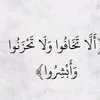 ﴿أَلَّا تَخَافُوا وَلَا تَحْزَنُوا
وَأَبْشِرُوا﴾